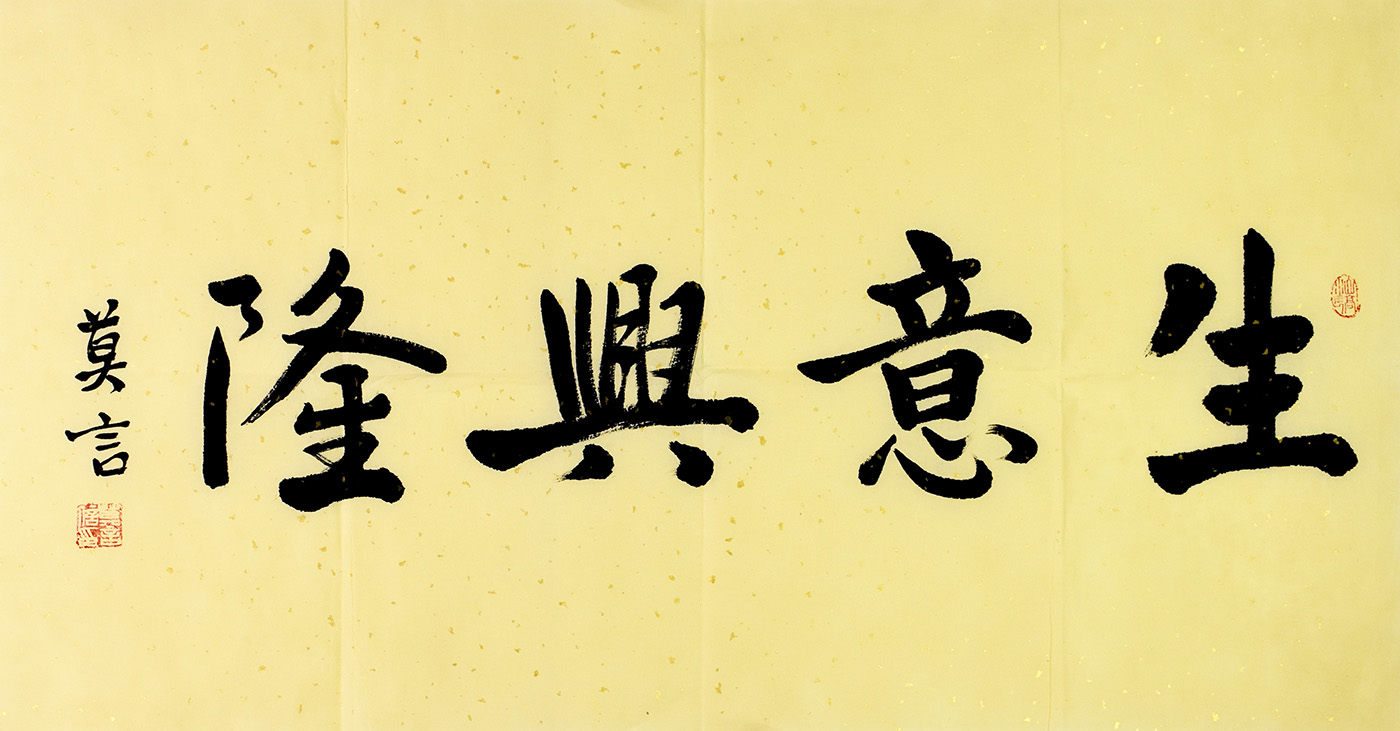 生意興隆
莫言